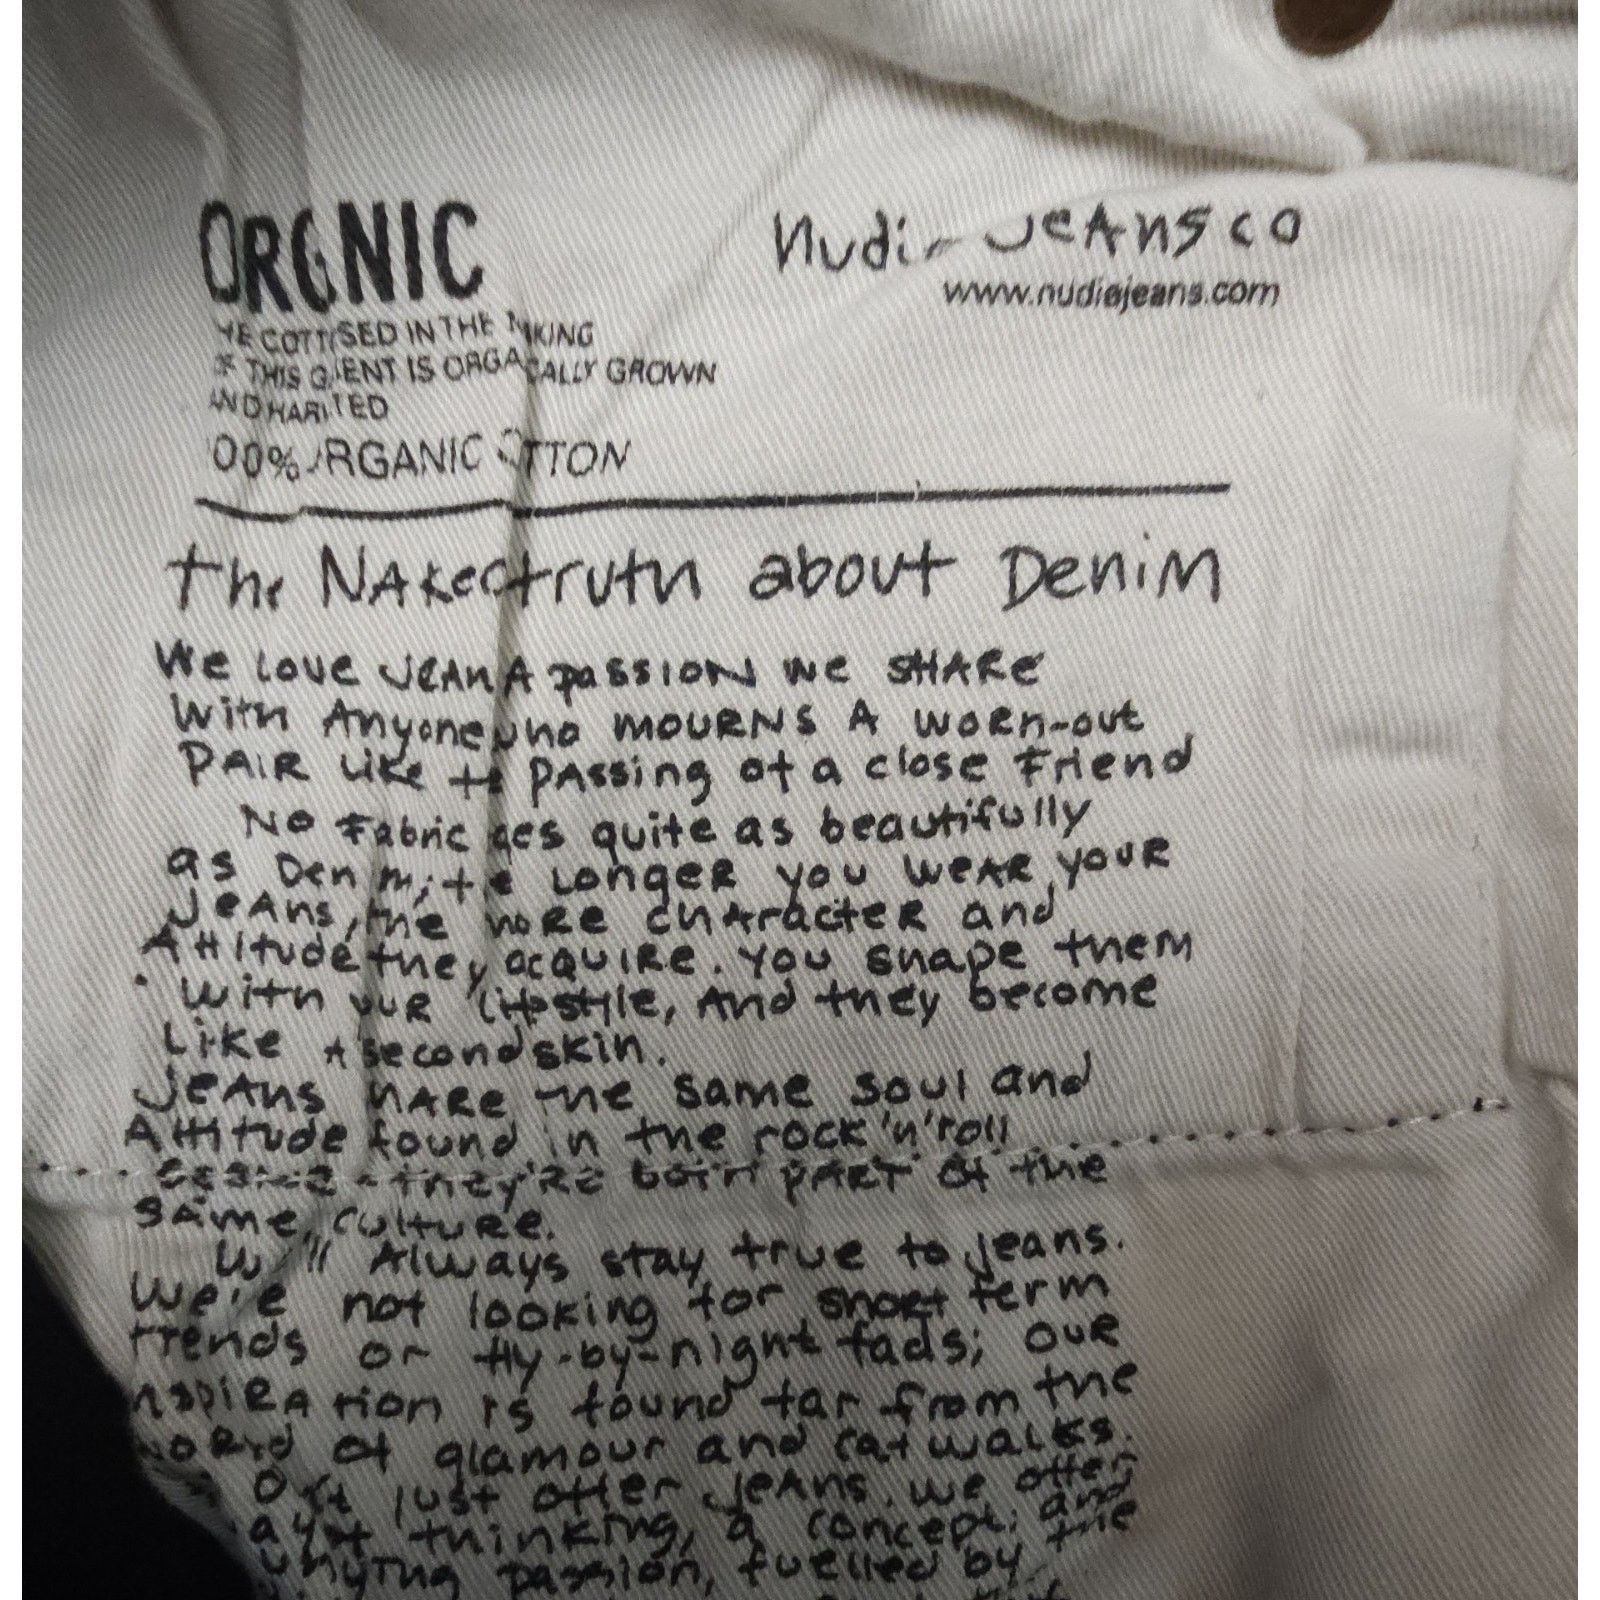 ORGNIC
nudie Jeans co
www.nudiejeans.com
THE COTT SED IN THE MAKING
OF THIS G ENT IS ORGA CALLY GROWN
AND HAR TED
100% ORGANIC COTTON
the NAKed truth about DeniM
We love JEAN A passION we SHARe
With Anyone who MOURNS A WORn-out
PAIR Like the PAssing of a close Friend
No Fabric ages quite as beautifully
as Denim; the Longer you WeAR your
JeAns, the moRe cHAracteR and
Attitude they acquIRe. You shape them
With youR lifestyle, And they become
Like A second skin.
JeAns sHARe the same soul and
Attitude found in the rock'n'roll
they're both pART of the
sAme cultuRe.
We'll Always stay true to jeans.
We're not looking for shoRt term
trends or fly-by-night fads; ouR
inspiRAtion is found far from the
woRld of glamour and catwalks.
Don't just offer JeAns. We offer
a way of thinking, a concept; and
unyting passion, fuelled by the